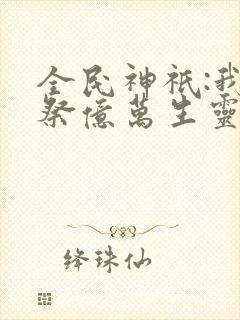 全民神祇:我
祭億萬生靈
绛珠仙